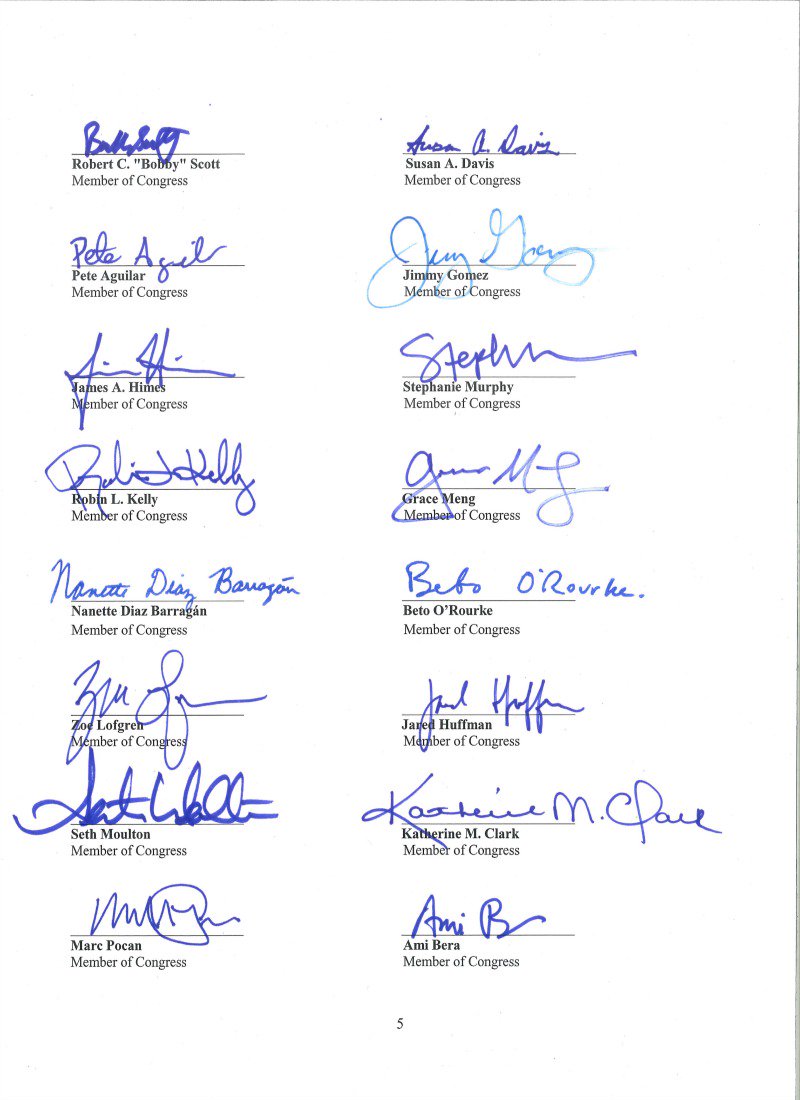 Bobby Scott
Robert C. "Bobby" Scott
Member of Congress
Susan A. Davis
Susan A. Davis
Member of Congress
Pete Aguilar
Pete Aguilar
Member of Congress
Jimmy Gomez
Jimmy Gomez
Member of Congress
Jim Himes
James A. Himes
Member of Congress
Stephanie Murphy
Member of Congress
Robin L Kelly
Robin L. Kelly
Member of Congress
Grace Meng
Grace Meng
Member of Congress
Nanette Diaz Barragán
Nanette Diaz Barragán
Member of Congress
Beto O'Rourke.
Beto O'Rourke
Member of Congress
Zoe Lofgren
Member of Congress
Jared Huffman
Jared Huffman
Member of Congress
Seth Moulton
Seth Moulton
Member of Congress
Katherine M. Clark
Katherine M. Clark
Member of Congress
Marc Pocan
Member of Congress
Ami Bera
Ami Bera
Member of Congress
5